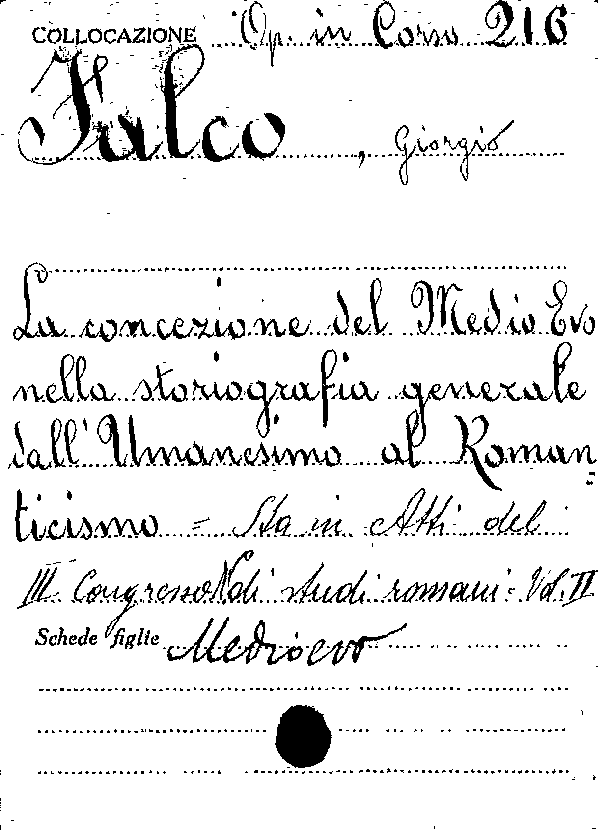 COLLOCAZIONE Op. in Corso 216
Falco, Giorgio
La concezione del Medio Evo
nella storiografia generale
dall'Umanesimo al Roman=
ticismo = Sta in Atti del
III Congresso N. di studi romani = Vol. II
Schede figlie Medioevo